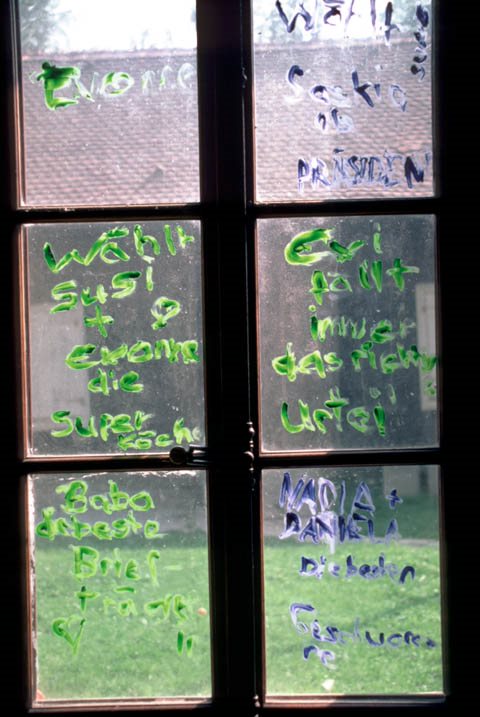 Wählt
Saskia
PRÄSIDEN
Wählt
Susi
+
Evonne
die
Super
köche
Evi
fällt
immer
das richtig
Urteil
Baba
die beste
Brief
träge
NADIA +
DANIELA
Die besten
Geschwore-
ne